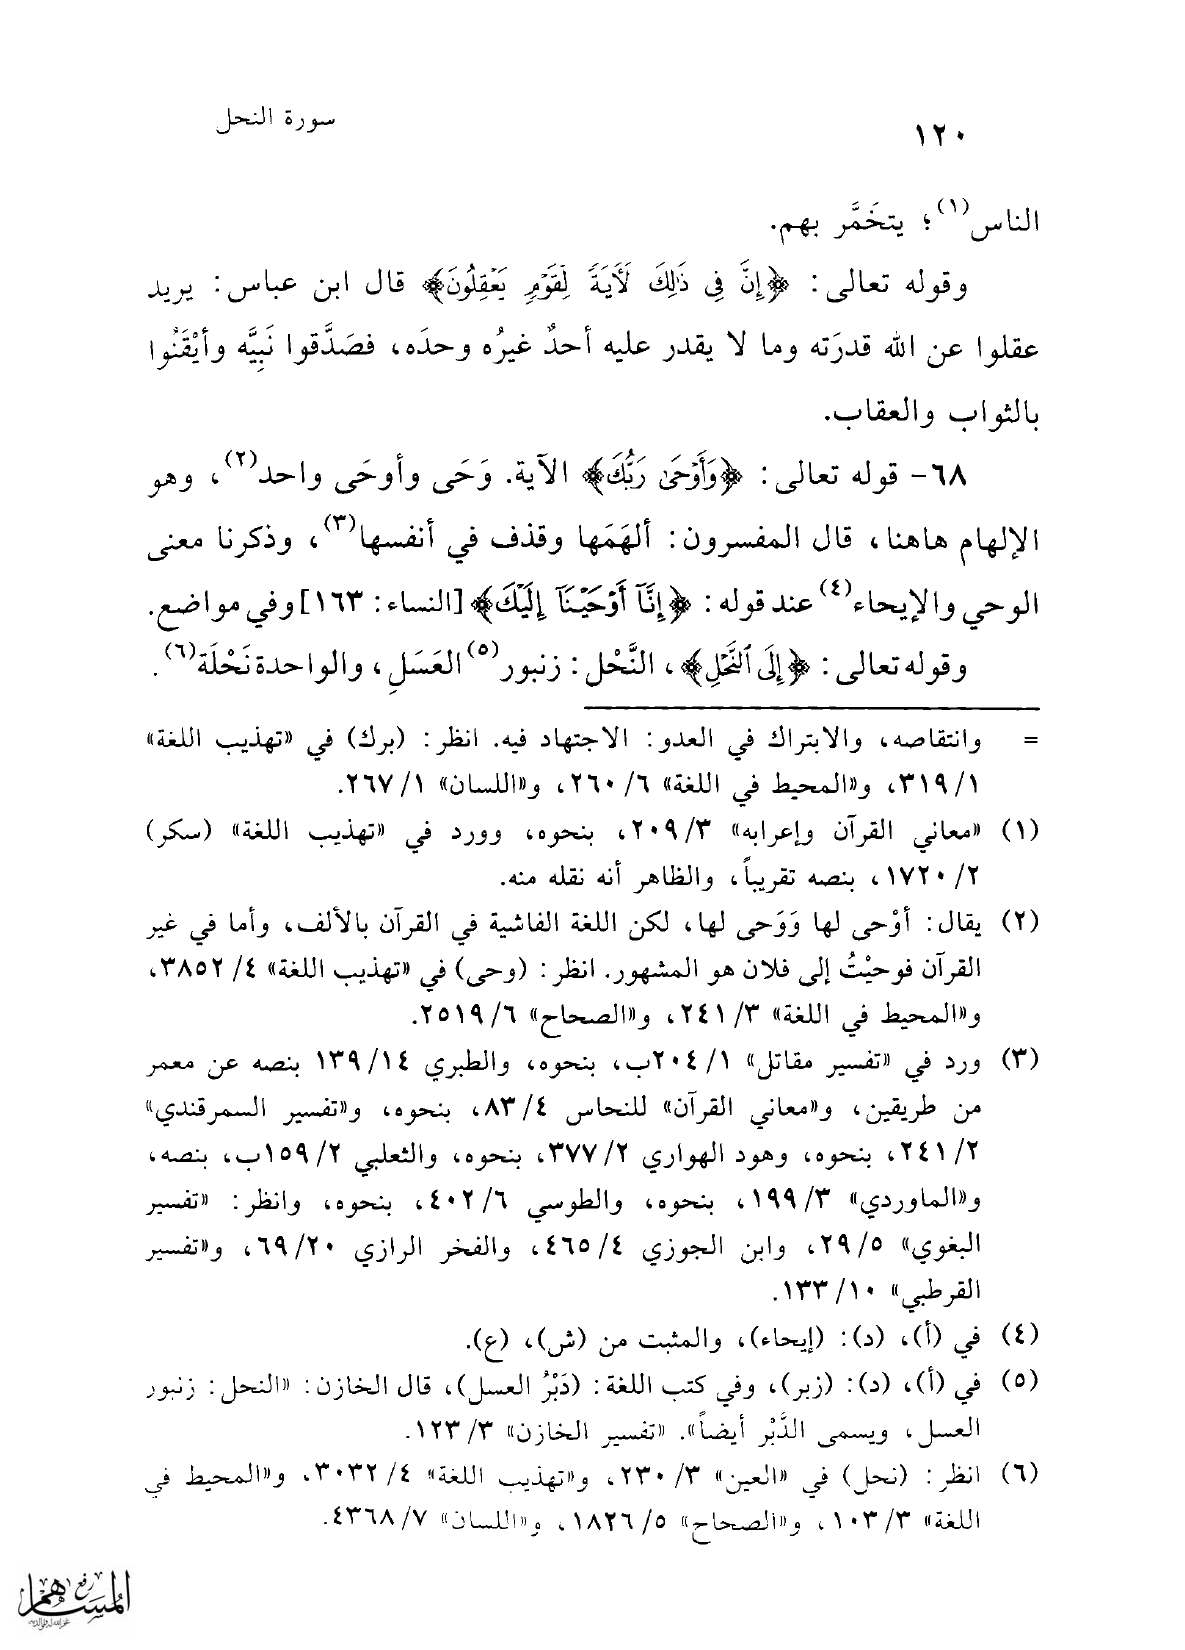 ١٢٠
سورة النحل
الناس(١)؛ يتخَمَّر بهم.
وقوله تعالى: ﴿إِنَّ فِي ذَٰلِكَ لَآيَةً لِّقَوْمٍ يَعْقِلُونَ﴾ قال ابن عباس: يريد
عقلوا عن الله قدرَته وما لا يقدر عليه أحدٌ غيرُه وحدَه، فصَدَّقوا نَبِيَّه وأيْقَنُوا
بالثواب والعقاب.
٦٨- قوله تعالى: ﴿وَأَوْحَىٰ رَبُّكَ﴾ الآية. وَحَى وأوحَى واحد(٢)، وهو
الإلهام هاهنا، قال المفسرون: ألهَمَها وقذف في أنفسها(٣)، وذكرنا معنى
الوحي والإيحاء(٤) عند قوله: ﴿إِنَّآ أَوْحَيْنَآ إِلَيْكَ﴾ [النساء: ١٦٣] وفي مواضع.
وقوله تعالى: ﴿إِلَى ٱلنَّحْلِ﴾، النَّحْل: زنبور(٥) العَسَلِ، والواحدة نَحْلَة(٦).
= وانتقاصه، والابتراك في العدو: الاجتهاد فيه. انظر: (برك) في «تهذيب اللغة»
١/ ٣١٩، و«المحيط في اللغة» ٦/ ٢٦٠، و«اللسان» ١/ ٢٦٧.
(١) «معاني القرآن وإعرابه» ٣/ ٢٠٩، بنحوه، وورد في «تهذيب اللغة» (سكر)
٢/ ١٧٢٠، بنصه تقريباً، والظاهر أنه نقله منه.
(٢) يقال: أوْحى لها وَوَحى لها، لكن اللغة الفاشية في القرآن بالألف، وأما في غير
القرآن فوحيْتُ إلى فلان هو المشهور. انظر: (وحى) في «تهذيب اللغة» ٤/ ٣٨٥٢،
و«المحيط في اللغة» ٣/ ٢٤١، و«الصحاح» ٦/ ٢٥١٩.
(٣) ورد في «تفسير مقاتل» ١/ ٢٠٤ب، بنحوه، والطبري ١٤/ ١٣٩ بنصه عن معمر
من طريقين، و«معاني القرآن» للنحاس ٤/ ٨٣، بنحوه، و«تفسير السمرقندي»
٢/ ٢٤١، بنحوه، وهود الهواري ٢/ ٣٧٧، بنحوه، والثعلبي ٢/ ١٥٩ب، بنصه،
و«الماوردي» ٣/ ١٩٩، بنحوه، والطوسي ٦/ ٤٠٢، بنحوه، وانظر: «تفسير
البغوي» ٥/ ٢٩، وابن الجوزي ٤/ ٤٦٥، والفخر الرازي ٢٠/ ٦٩، و«تفسير
القرطبي» ١٠/ ١٣٣.
(٤) في (أ)، (د): (إيحاء)، والمثبت من (ش)، (ع).
(٥) في (أ)، (د): (زبر)، وفي كتب اللغة: (دَبْرُ العسل)، قال الخازن: «النحل: زنبور
العسل، ويسمى الدَّبْر أيضاً». «تفسير الخازن» ٣/ ١٢٣.
(٦) انظر: (نحل) في «العين» ٣/ ٢٣٠، و«تهذيب اللغة» ٤/ ٣٠٣٢، و«المحيط في
اللغة» ٣/ ١٠٣، و«الصحاح» ٥/ ١٨٢٦، و«اللسان» ٧/ ٤٣٦٨.